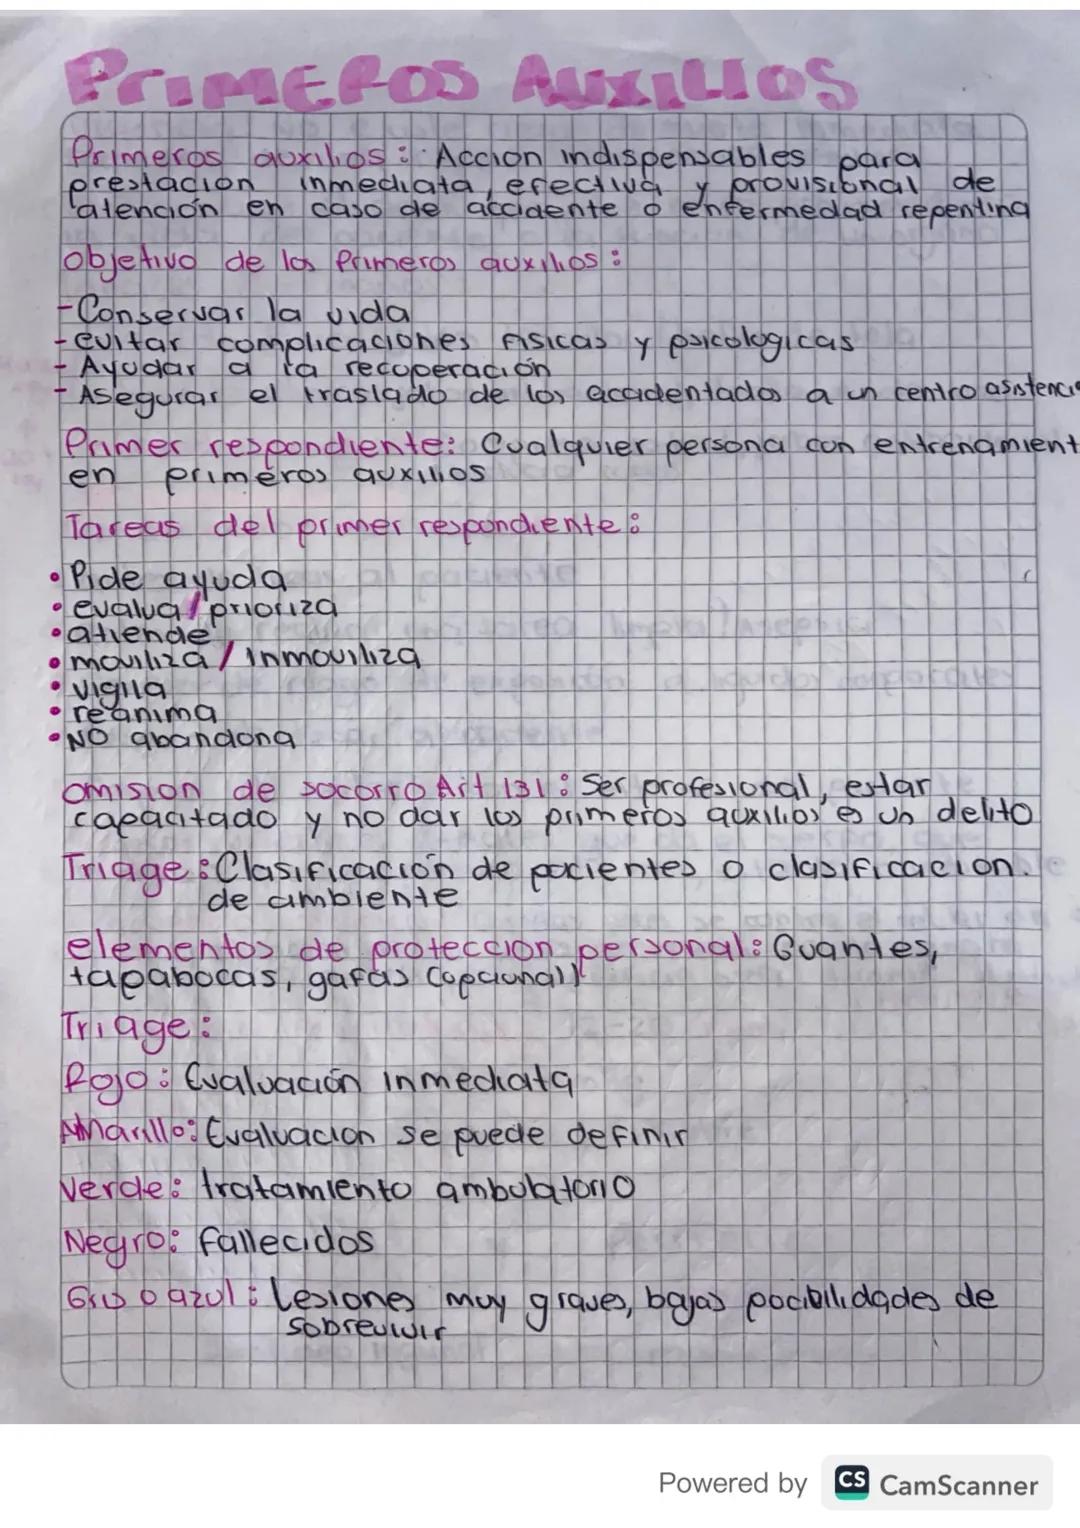 PrIMEROS AUXILIOS
Primeros auxilios: Accion indispensables para
prestacion inmediata, efectiva y provisional de
atención en caso de accidente o enfermedad repentina
Objetivo de los Primeros auxilios:
-Conservar la vida
-evitar complicaciones fisicas y psicologicas
- Ayudar a la recuperación
- Asegurar el traslado de los accidentados a un centro asistencia
Primer respondiente: Cualquier persona con entrenamient
en primeros auxilios
Tareas del primer respondiente:
• Pide ayuda
• evalua/prioriza
• atiende
• moviliza / inmoviliza
• vigila
• reanima
• NO abandona
omision de socorro Art 131: Ser profesional, estar
capacitado y no dar los primeros auxilios es un delito
Triage: Clasificación de pacientes o clasificacion.
de ambiente
elementos de proteccion personal: Guantes,
tapabocas, gafas (opcional)
Triage:
Rojo: Evaluación inmediata
Amarillo: Evaluacion se puede definir
Verde: tratamiento ambulatorio
Negro: fallecidos
Gris o azul: Lesiones muy graves, bajas pocibilidades de
sobrevivir
Powered by CS CamScanner